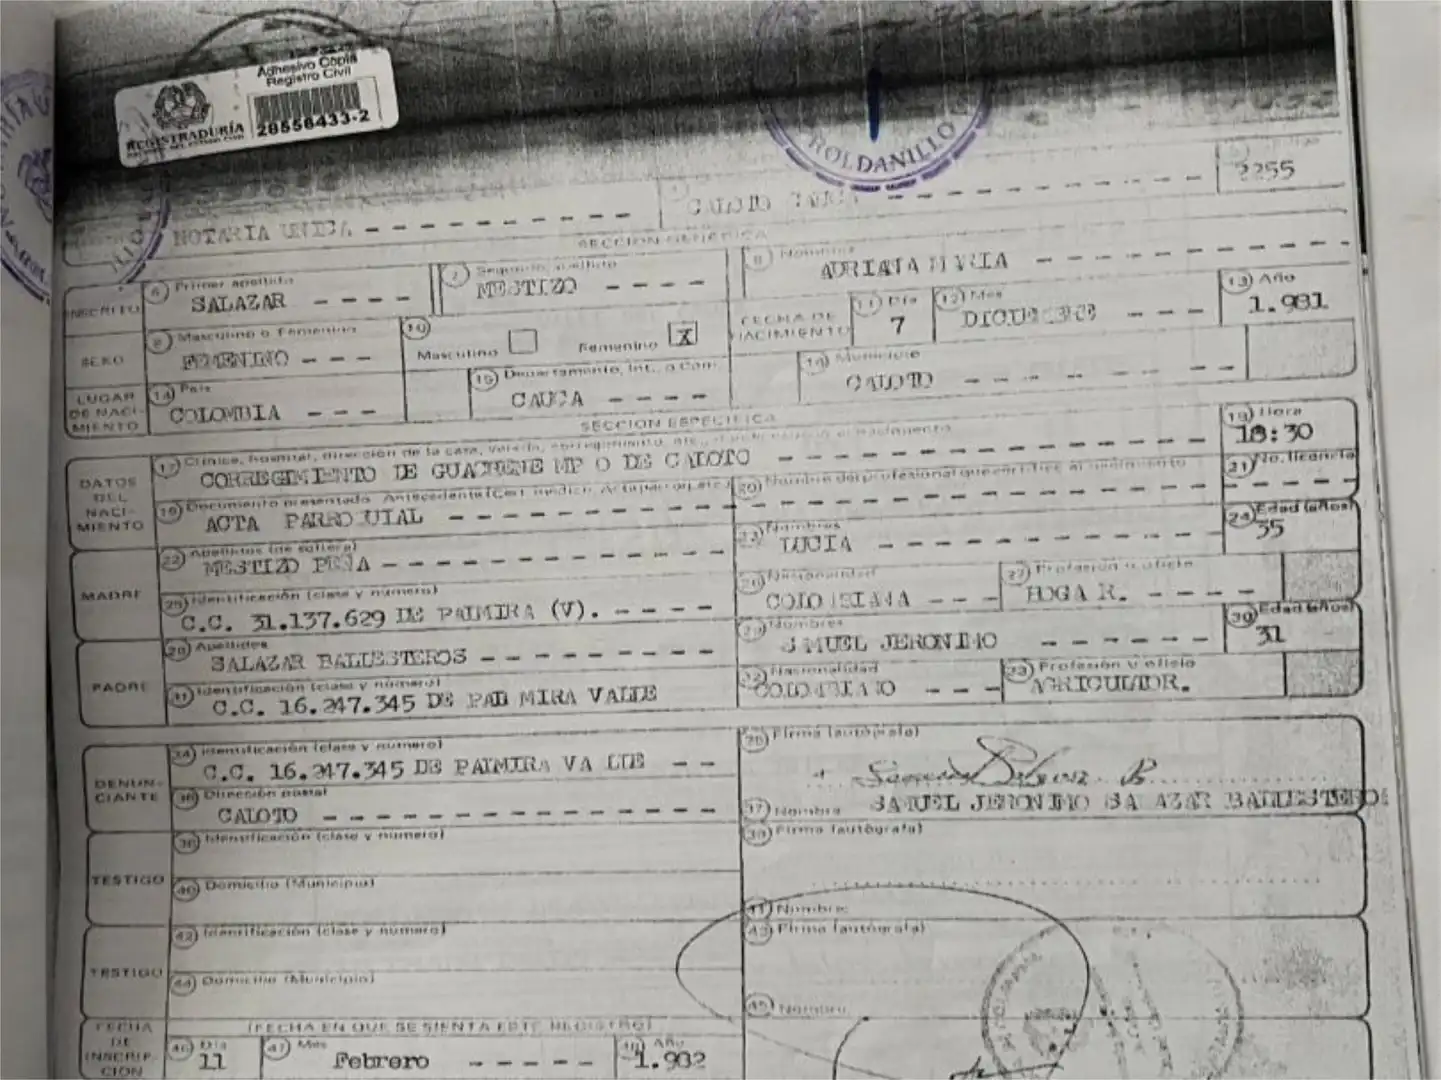 Adhesivo Copia
Registro Civil
REGISTRADURÍA
28558433-2
ROLDANILLO
2255
NOTARIA UNICA CALOTO CAUCA
SECCION GENERICA
INSCRITO 6 Primer apellido SALAZAR 7 Segundo apellido MESTIZO 8 Nombres ADRIANA MARIA
SEXO 9 Masculino o Femenino FEMENINO 10 Masculino Femenino X FECHA DE NACIMIENTO 11 Día 7 12 Mes DICIEMBRE 13 Año 1.981
LUGAR DE NACIMIENTO 14 País COLOMBIA 15 Departamento, Int., o Com. CAUCA 16 Municipio CALOTO
SECCION ESPECIFICA
DATOS DEL NACIMIENTO 17 Clínica, hospital, dirección de la casa, vereda, corregimiento, etc., donde ocurrió el nacimiento CORREGIMIENTO DE GUACHENE MP O DE CALOTO 18 Hora 18:30
19 Documento presentado Antecedente (Cert. médico, Acta parroq. etc.) ACTA PARROQUIAL 20 Nombre del profesional que certifico el nacimiento 21 No. licencia
MADRE 22 Apellidos (de soltera) MESTIZO PEÑA 23 Nombres LUCIA 24 Edad (años) 35
25 Identificación (clase y número) C.C. 31.137.629 DE PALMIRA (V). 26 Nacionalidad COLOMBIANA 27 Profesión u oficio HOGAR.
PADRE 28 Apellidos SALAZAR BALLESTEROS 29 Nombres SAMUEL JERONIMO 30 Edad (años) 31
31 Identificación (clase y número) C.C. 16.247.345 DE PALMIRA VALLE 32 Nacionalidad COLOMBIANO 33 Profesión u oficio AGRICULTOR.
DENUNCIANTE 34 Identificación (clase y número) C.C. 16.247.345 DE PALMIRA VALLE 35 Firma (autógrafa)
36 Dirección postal CALOTO 37 Nombre SAMUEL JERONIMO SALAZAR BALLESTEROS
TESTIGO 38 Identificación (clase y número) 39 Firma (autógrafa)
40 Domicilio (Municipio) 41 Nombre:
TESTIGO 42 Identificación (clase y número) 43 Firma (autógrafa)
44 Domicilio (Municipio) 45 Nombre:
FECHA DE INSCRIPCION (FECHA EN QUE SE SIENTA ESTE REGISTRO)
46 Día 11 47 Mes Febrero 48 Año 1.982